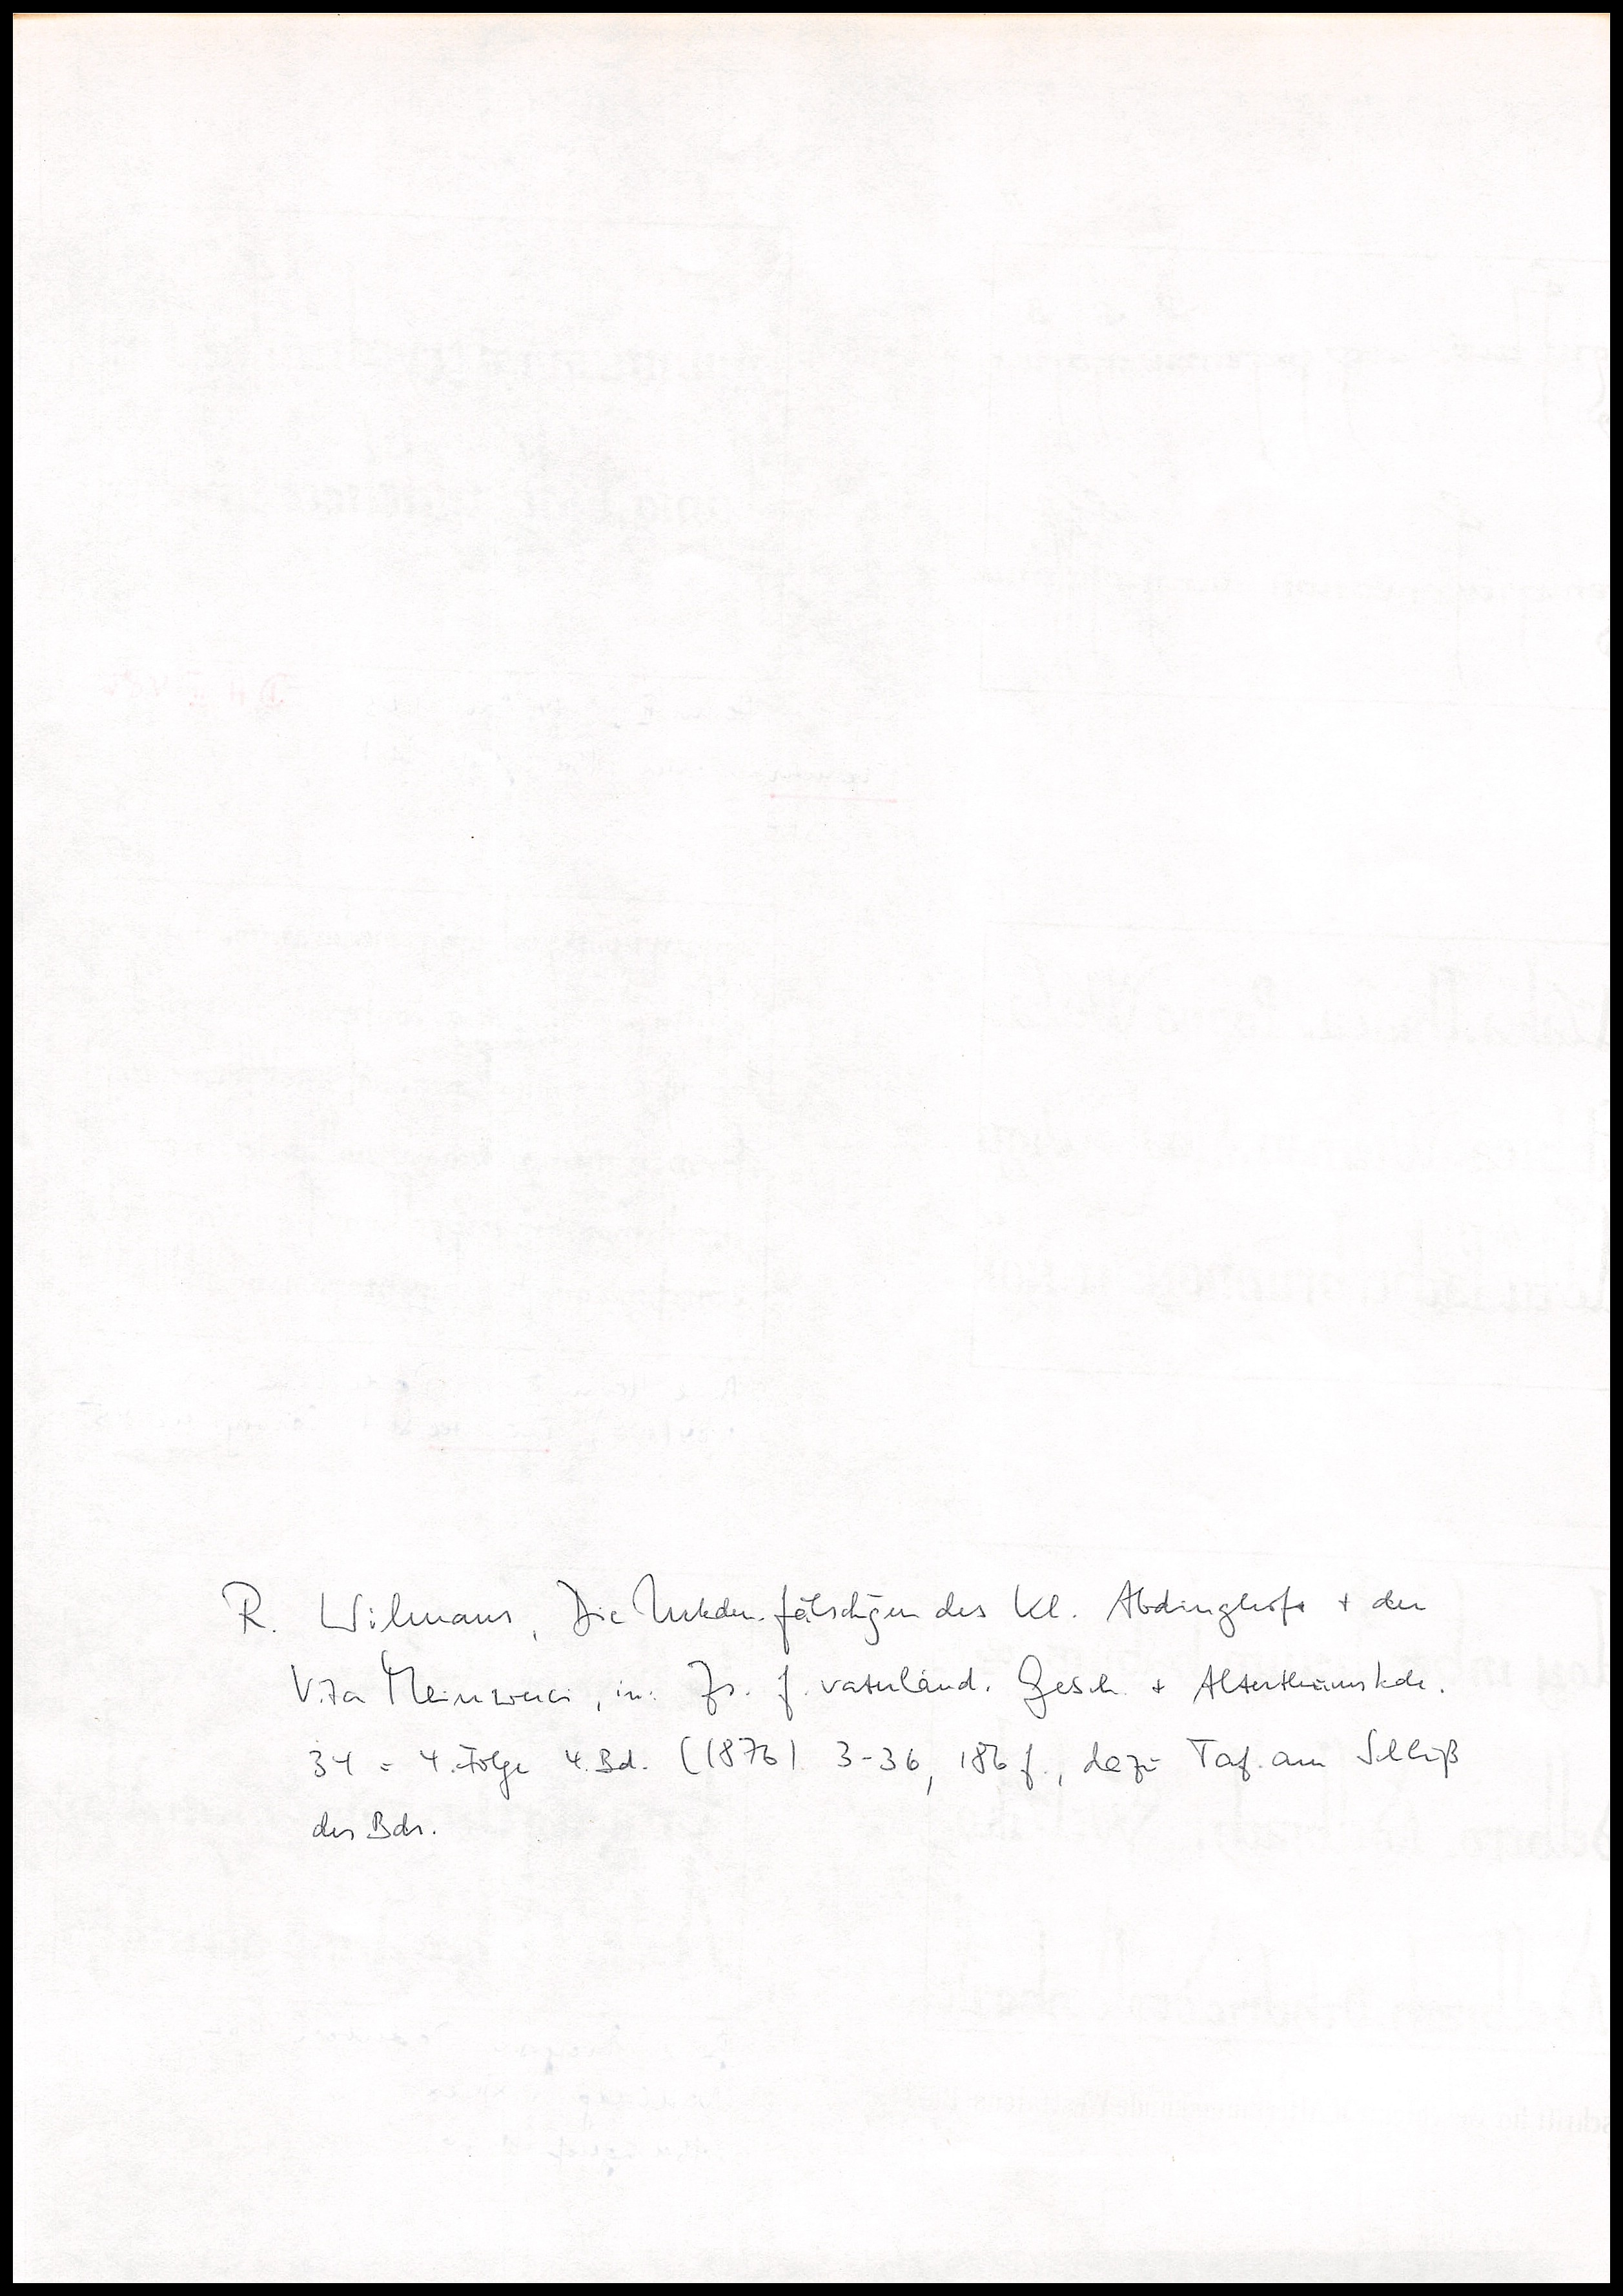 R. Wilmans, Die Urkdn.fälschgen des Kl. Abdinghofs + der
Vita Meinwerci, in: Zs. f. vaterländ. Gesch. + Alterthumskde.
34 = 4. Folge 4. Bd. (1876) 3-36, 186 f., dazu Taf. am Schluß
des Bds.